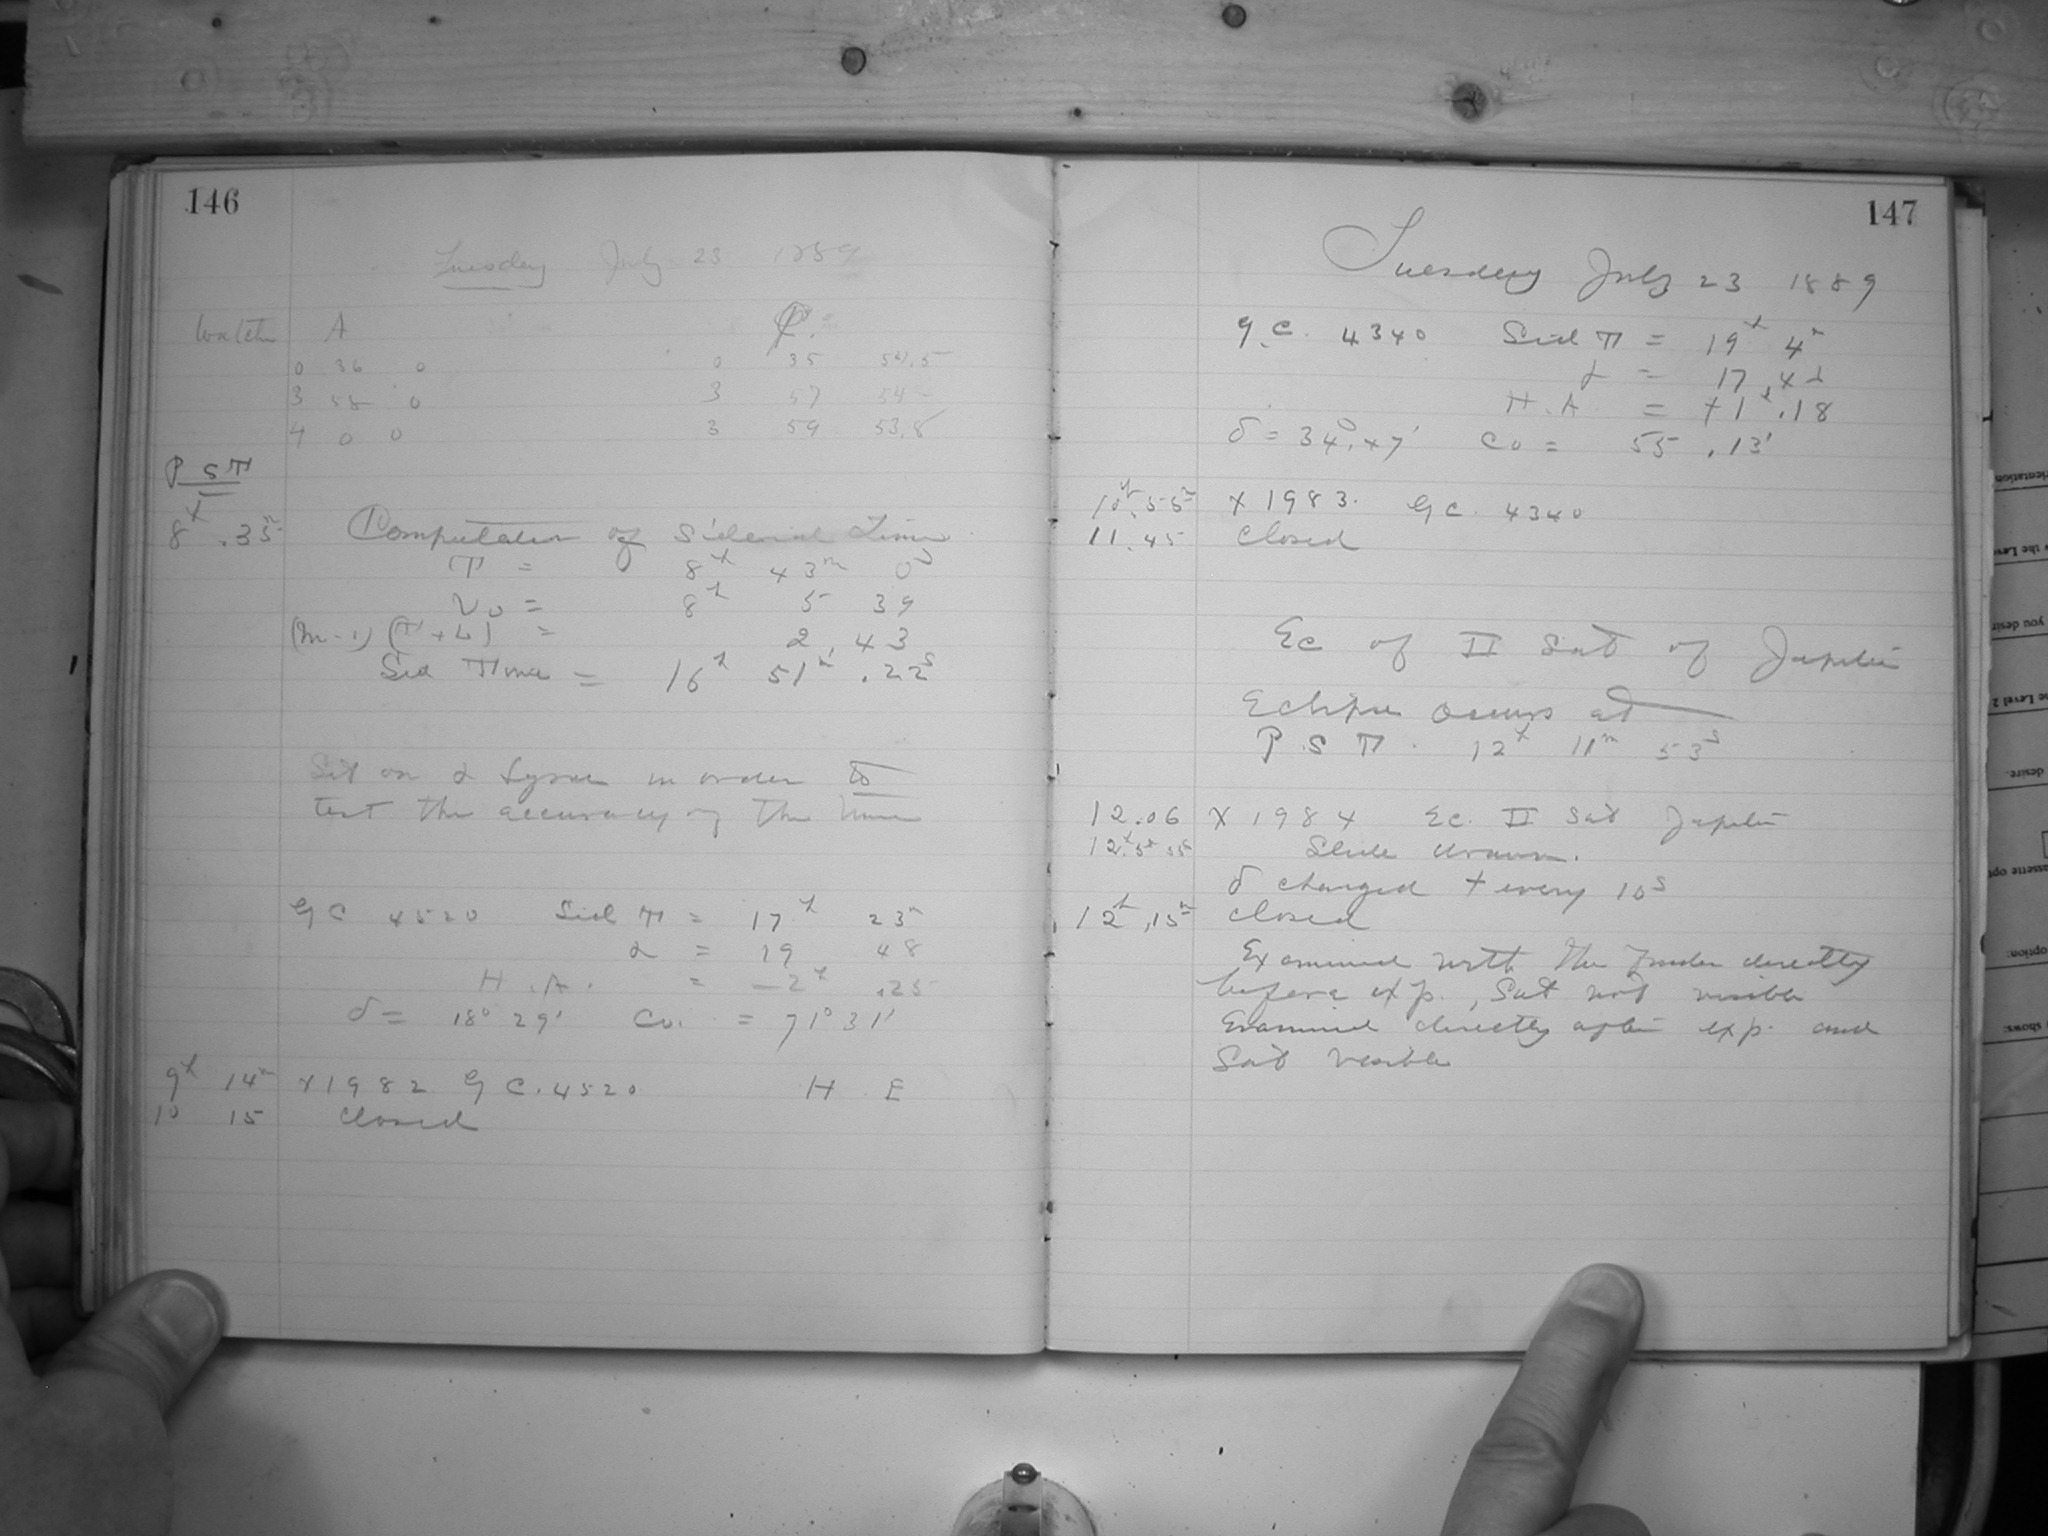 146
Tuesday July 23 1889
Watch A P.
0 36 0 0 35 54.5
3 58 0 3 57 54
4 0 0 3 59 53.8
P S T
8h .35m Computation of Sidereal Time
T = 8h 43m 0s
V0 = 8h 5 39
(m-1) (T+L) = 2,43
Sid Time = 16h 51m .22s
Set on α Lyrae in order to
test the accuracy of the time
G C 4520 Sid T = 17h 23m
α = 19 48
H.A. = -2h .25
δ = 18° 29' Co. = 71° 31'
9h 14m X 1982 G C. 4520 H E
10 15 closed
147
Tuesday July 23 1889
G.C. 4340 Sid T = 19h 4m
α = 17,42
H.A. = +1h.18
δ = 34°.47' Co = 55 .13'
10h.55m X 1983. G C. 4340
11.45 closed
Ec of II Sat of Jupiter
Eclipse occurs at
P.S.T. 12h 11m 53s
12.06 X 1984 Ec. II Sat Jupiter
Slide drawn.
δ changed + every 10s
12h,15m closed
Examined with the Finder directly
before exp., Sat not visible
Examined directly after exp. and
Sat visible